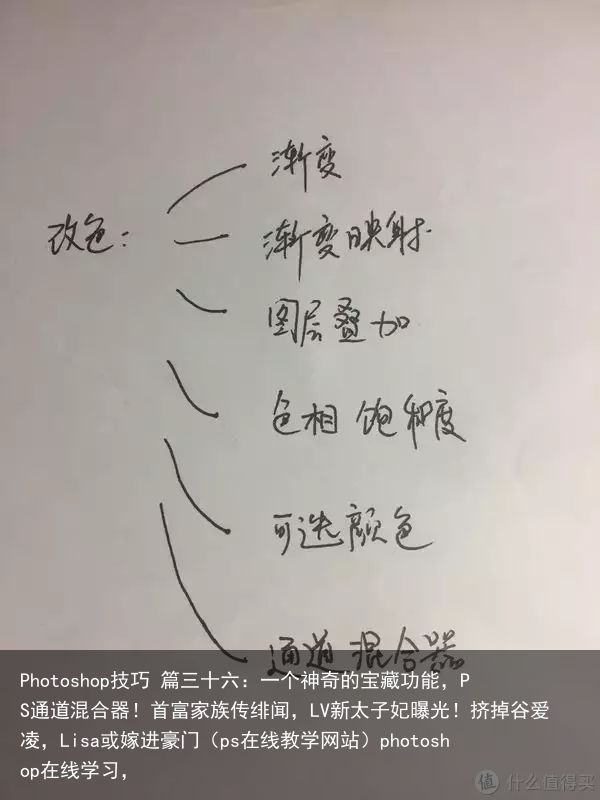 渐变
改色：
渐变映射
图层叠加
色相 饱和度
可选颜色
通道混合器
Photoshop技巧 篇三十六：一个神奇的宝藏功能，P
S通道混合器！首富家族传绯闻，LV新太子妃曝光！挤掉谷爱
凌，Lisa或嫁进豪门（ps在线教学网站）photosh
op在线学习，
值 什么值得买